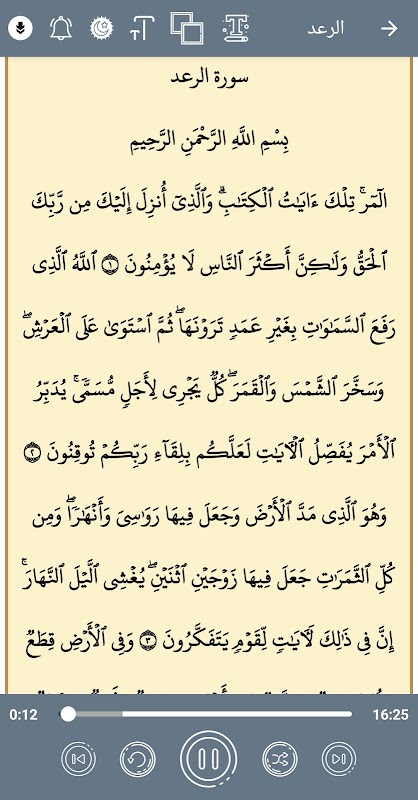 الرعد
سورة الرعد
بِسْمِ اللَّهِ الرَّحْمَٰنِ الرَّحِيمِ
الٓمٓرۚ تِلْكَ ءَايَٰتُ ٱلْكِتَٰبِۗ وَٱلَّذِىٓ أُنزِلَ إِلَيْكَ مِن رَّبِّكَ
ٱلْحَقُّ وَلَٰكِنَّ أَكْثَرَ ٱلنَّاسِ لَا يُؤْمِنُونَ ١ ٱللَّهُ ٱلَّذِى
رَفَعَ ٱلسَّمَٰوَٰتِ بِغَيْرِ عَمَدٍ تَرَوْنَهَاۖ ثُمَّ ٱسْتَوَىٰ عَلَى ٱلْعَرْشِۖ
وَسَخَّرَ ٱلشَّمْسَ وَٱلْقَمَرَۖ كُلٌّ يَجْرِى لِأَجَلٍ مُّسَمًّىۚ يُدَبِّرُ
ٱلْأَمْرَ يُفَصِّلُ ٱلْءَايَٰتِ لَعَلَّكُم بِلِقَآءِ رَبِّكُمْ تُوقِنُونَ ٢
وَهُوَ ٱلَّذِى مَدَّ ٱلْأَرْضَ وَجَعَلَ فِيهَا رَوَٰسِىَ وَأَنْهَٰرًاۖ وَمِن
كُلِّ ٱلثَّمَرَٰتِ جَعَلَ فِيهَا زَوْجَيْنِ ٱثْنَيْنِۖ يُغْشِى ٱلَّيْلَ ٱلنَّهَارَۚ
إِنَّ فِى ذَٰلِكَ لَءَايَٰتٍ لِّقَوْمٍ يَتَفَكَّرُونَ ٣ وَفِى ٱلْأَرْضِ قِطَعٌ
0:12
16:25